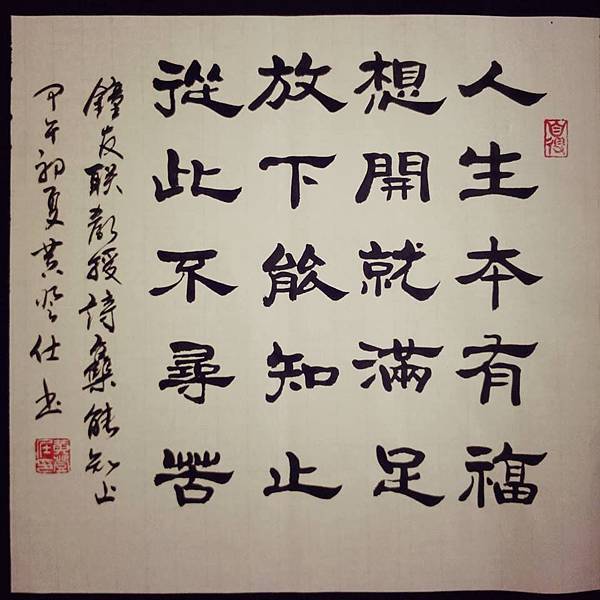 人生本有福
想開就滿足
放下能知止
從此不尋苦
鐘友联教授詩集能知止
甲午初夏黃登仕书